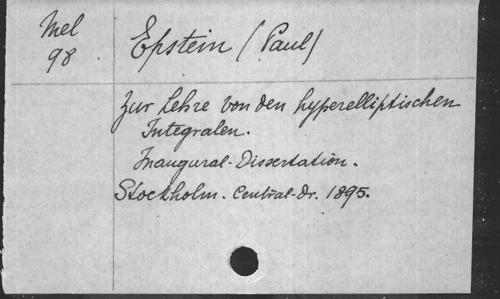 Mel
98
Epstein (Paul)
Zur Lehre von den hyperelliptischen
Integralen.
Inaugural-Dissertation.
Stockholm. Central-Dr. 1895.